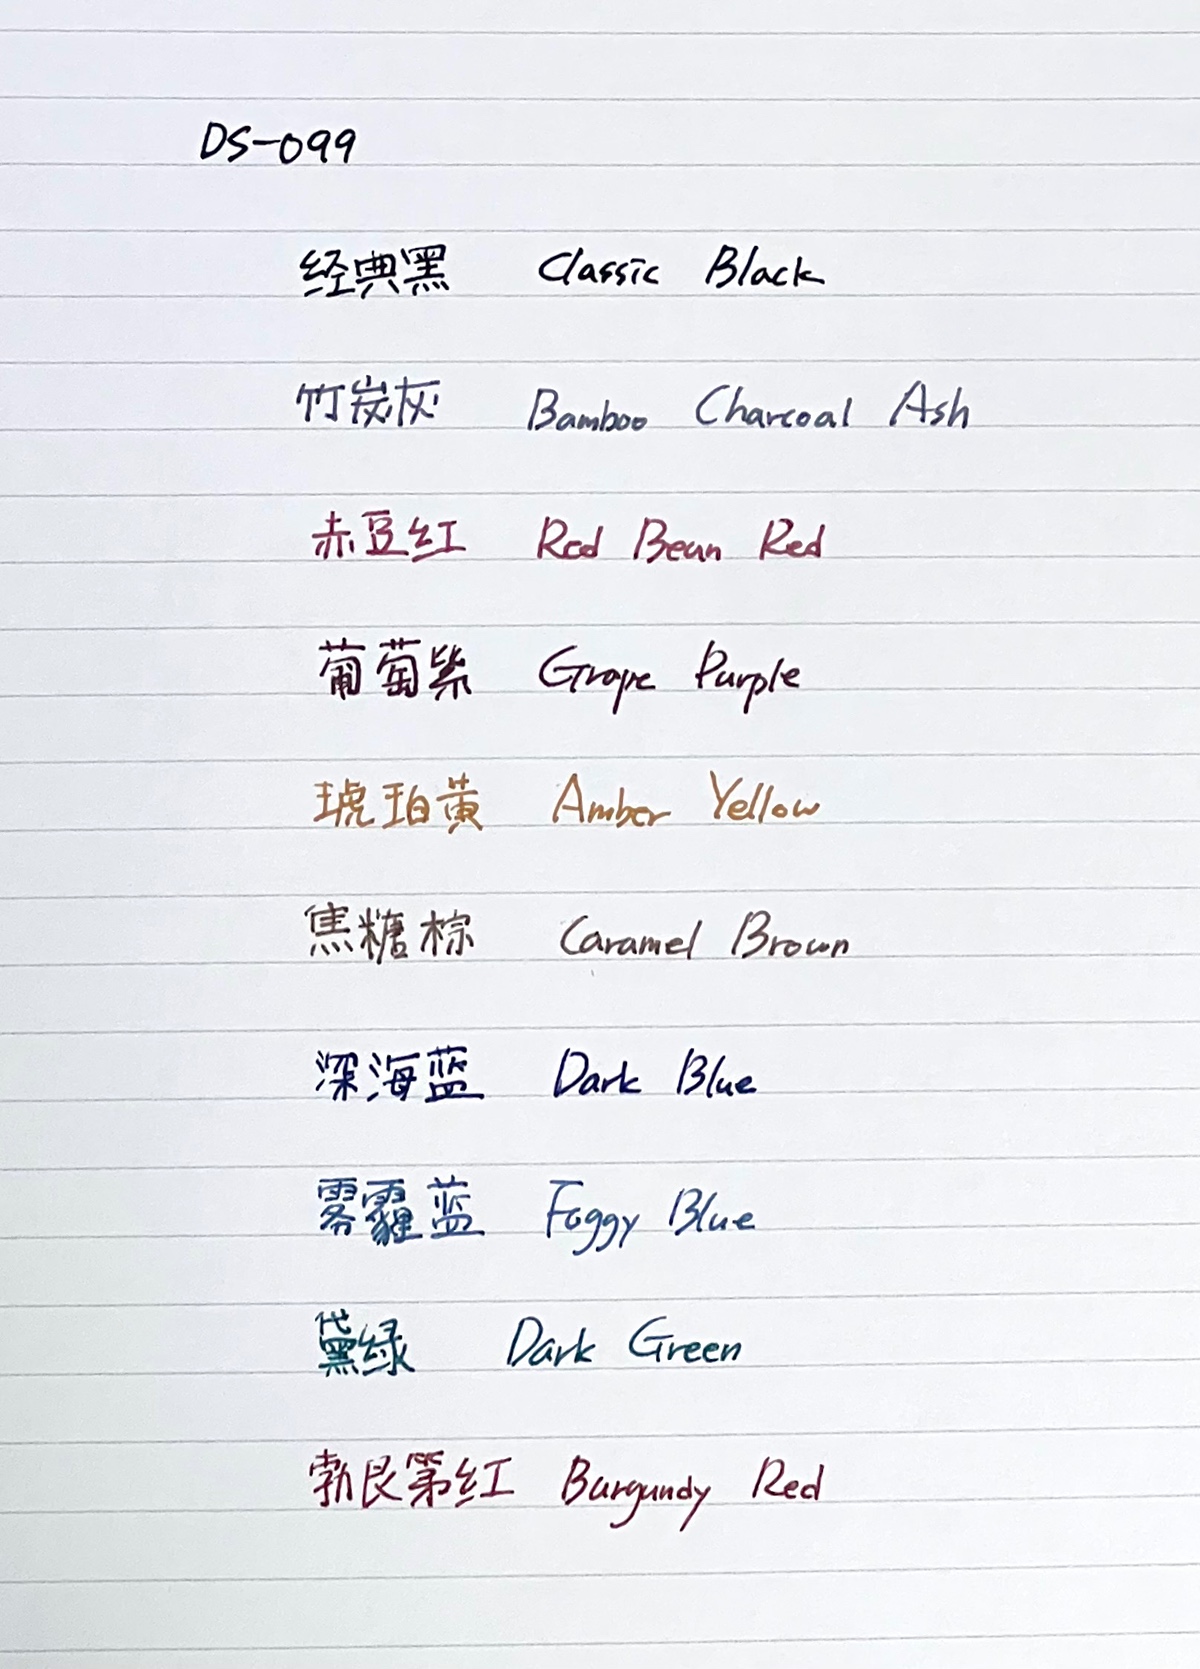 DS-099
经典黑 Classic Black
竹炭灰 Bamboo Charcoal Ash
赤豆红 Red Bean Red
葡萄紫 Grape Purple
琥珀黄 Amber Yellow
焦糖棕 Caramel Brown
深海蓝 Dark Blue
雾霾蓝 Foggy Blue
黛绿 Dark Green
勃艮第红 Burgundy Red